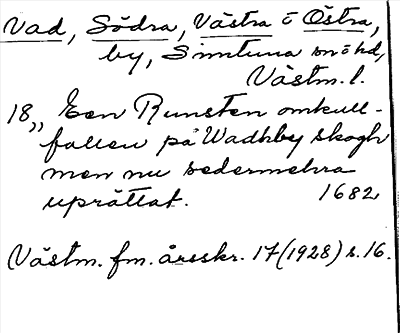 Vad, Södra, Västra o Östra,
by, Simtuna sn o hd,
Västm. l.
18,, Een Runsten omkull-
fallen på Wadhby skogh
men nu vedermehra
uprättat. 1682
Västm. fm. årsskr. 17 (1928) s. 16.